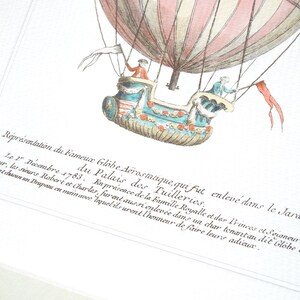 Représentation du Fameux Globe Aérostatique, qui fut enlevé dans le Jar
du Palais des Tuilleries.
Le 1er Décembre 1783. En présence de la Famille Royalle et des Princes et Seigneur
les sieurs Robert et Charles furent aussi enlevés dans un char tenant au dit Globe
chacun un Drapeau en main avec lequel ils eurent l'honneur de faire leurs adieux.